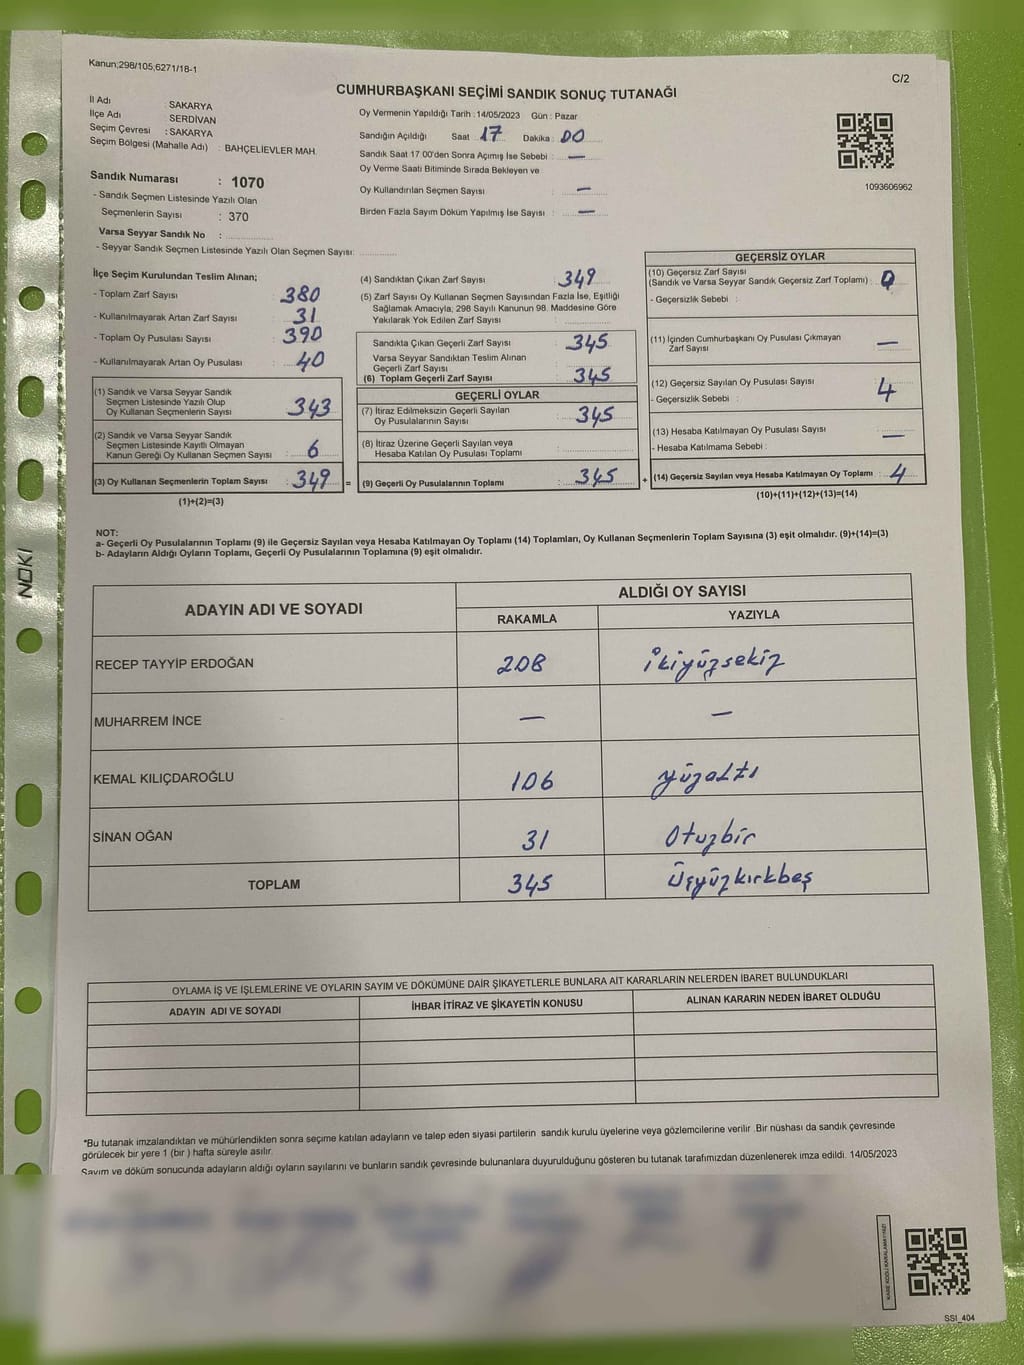 Kanun;298/105,6271/18-1
C/2
CUMHURBAŞKANI SEÇİMİ SANDIK SONUÇ TUTANAĞI
İl Adı : SAKARYA
İlçe Adı SERDİVAN
Seçim Çevresi : SAKARYA
Seçim Bölgesi (Mahalle Adı) : BAHÇELİEVLER MAH.
Sandık Numarası : 1070
- Sandık Seçmen Listesinde Yazılı Olan
Seçmenlerin Sayısı : 370
Varsa Seyyar Sandık No :
- Seyyar Sandık Seçmen Listesinde Yazılı Olan Seçmen Sayısı:
Oy Vermenin Yapıldığı Tarih : 14/05/2023 Gün : Pazar
Sandığın Açıldığı Saat 17 Dakika : 00
Sandık Saat 17 00'den Sonra Açımış İse Sebebi : —
Oy Verme Saati Bitiminde Sırada Bekleyen ve
Oy Kullandırılan Seçmen Sayısı —
Birden Fazla Sayım Döküm Yapılmış İse Sayısı : —
1093606962
İlçe Seçim Kurulundan Teslim Alınan;
- Toplam Zarf Sayısı : 380
- Kullanılmayarak Artan Zarf Sayısı : 31
- Toplam Oy Pusulası Sayısı : 390
- Kullanılmayarak Artan Oy Pusulası : 40
(1) Sandık ve Varsa Seyyar Sandık
Seçmen Listesinde Yazılı Olup
Oy Kullanan Seçmenlerin Sayısı : 343
(2) Sandık ve Varsa Seyyar Sandık
Seçmen Listesinde Kayıtlı Olmayan
Kanun Gereği Oy Kullanan Seçmen Sayısı : 6
(3) Oy Kullanan Seçmenlerin Toplam Sayısı : 349 =
(1)+(2)=(3)
(4) Sandıktan Çıkan Zarf Sayısı : 349
(5) Zarf Sayısı Oy Kullanan Seçmen Sayısından Fazla İse, Eşitliği
Sağlamak Amacıyla, 298 Sayılı Kanunun 98. Maddesine Göre
Yakılarak Yok Edilen Zarf Sayısı :
Sandıkta Çıkan Geçerli Zarf Sayısı : 345
Varsa Seyyar Sandıktan Teslim Alınan
Geçerli Zarf Sayısı :
(6) Toplam Geçerli Zarf Sayısı : 345
GEÇERLİ OYLAR
(7) İtiraz Edilmeksizin Geçerli Sayılan
Oy Pusulalarının Sayısı : 345
(8) İtiraz Üzerine Geçerli Sayılan veya
Hesaba Katılan Oy Pusulası Toplamı :
(9) Geçerli Oy Pusulalarının Toplamı : 345 +
GEÇERSİZ OYLAR
(10) Geçersiz Zarf Sayısı
(Sandık ve Varsa Seyyar Sandık Geçersiz Zarf Toplamı) : 0
- Geçersizlik Sebebi :
(11) İçinden Cumhurbaşkanı Oy Pusulası Çıkmayan
Zarf Sayısı : —
(12) Geçersiz Sayılan Oy Pusulası Sayısı : 4
- Geçersizlik Sebebi :
(13) Hesaba Katılmayan Oy Pusulası Sayısı : —
- Hesaba Katılmama Sebebi :
(14) Geçersiz Sayılan veya Hesaba Katılmayan Oy Toplamı : 4
(10)+(11)+(12)+(13)=(14)
NOT:
a- Geçerli Oy Pusulalarının Toplamı (9) ile Geçersiz Sayılan veya Hesaba Katılmayan Oy Toplamı (14) Toplamları, Oy Kullanan Seçmenlerin Toplam Sayısına (3) eşit olmalıdır. (9)+(14)=(3)
b- Adayların Aldığı Oyların Toplamı, Geçerli Oy Pusulalarının Toplamına (9) eşit olmalıdır.
ADAYIN ADI VE SOYADI ALDIĞI OY SAYISI
RAKAMLA YAZIYLA
RECEP TAYYİP ERDOĞAN 208 ikiyüzsekiz
MUHARREM İNCE — —
KEMAL KILIÇDAROĞLU 106 yüzaltı
SİNAN OĞAN 31 Otuzbir
TOPLAM 345 Üçyüzkırkbeş
OYLAMA İŞ VE İŞLEMLERİNE VE OYLARIN SAYIM VE DÖKÜMÜNE DAİR ŞİKAYETLERLE BUNLARA AİT KARARLARIN NELERDEN İBARET BULUNDUKLARI
ADAYIN ADI VE SOYADI İHBAR İTİRAZ VE ŞİKAYETİN KONUSU ALINAN KARARIN NEDEN İBARET OLDUĞU
*Bu tutanak imzalandıktan ve mühürlendikten sonra seçime katılan adayların ve talep eden siyasi partilerin sandık kurulu üyelerine veya gözlemcilerine verilir .Bir nüshası da sandık çevresinde
görülecek bir yere 1 (bir ) hafta süreyle asılır.
Sayım ve döküm sonucunda adayların aldığı oyların sayılarını ve bunların sandık çevresinde bulunanlara duyurulduğunu gösteren bu tutanak tarafımızdan düzenlenerek imza edildi. 14/05/2023
KARE KODU KARALAMAYINIZ!
SSI_404
NOKI